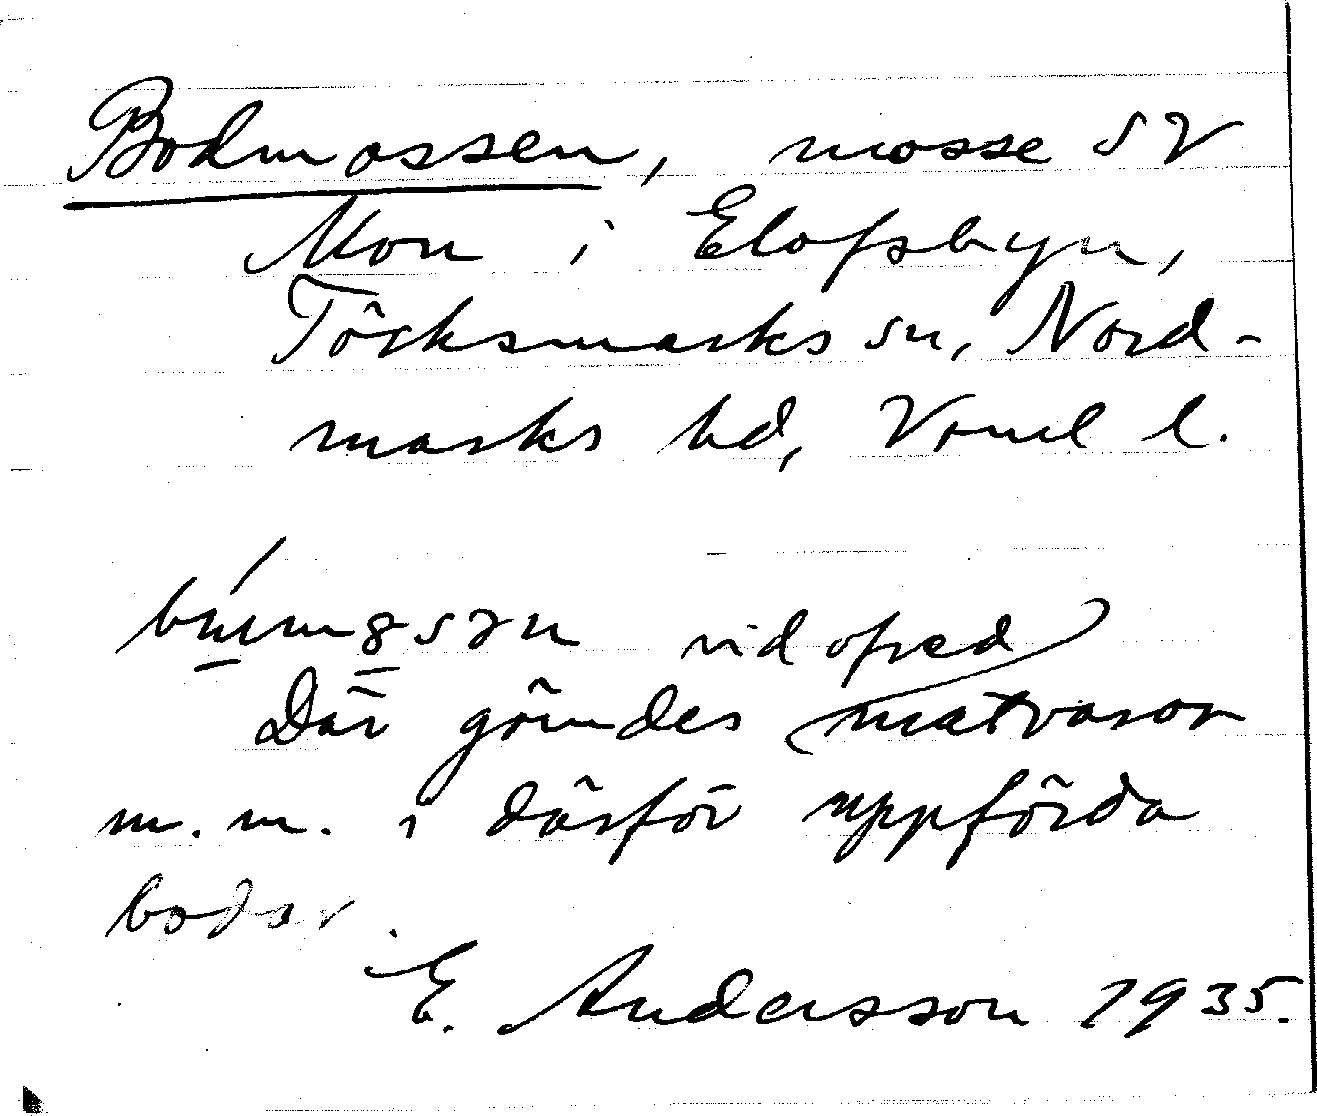 Bodmossen, mosse SV
Mon i Elofsbyn,
Töcksmarks sn, Nord-
marks hd, Vrml l.
vid ofred
Där gömdes matvaror
m.m. i därför uppförda
bodar.
E. Andersson 1935.